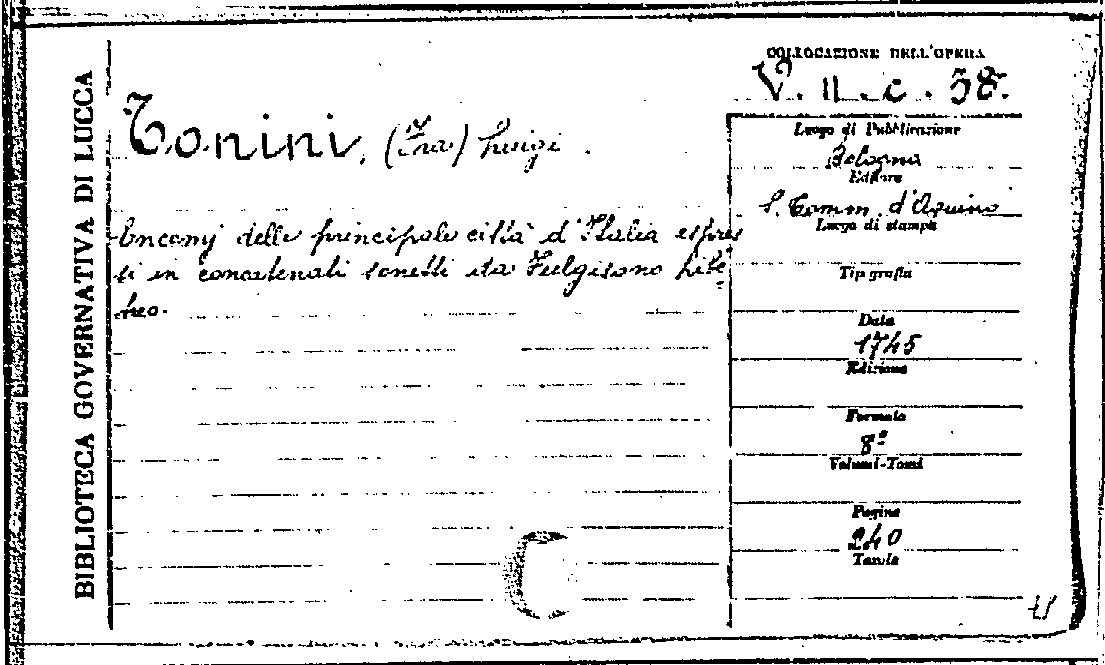 BIBLIOTECA GOVERNATIVA DI LUCCA
COLLOCAZIONE DELL'OPERA
V. II. c. 38.
Tonini, (Fra) Luigi.
Luogo di Pubblicazione
Bologna
Editore
S. Tomm. d'Aquino
Luogo di stampa
Encomj delle principale città d'Italia espres
si in concatenati sonetti da Fulgisono Lite
Tipografia
Data
1745
Edizione
Formato
8º
Volumi-Tomi
Pagine
240
Tavole